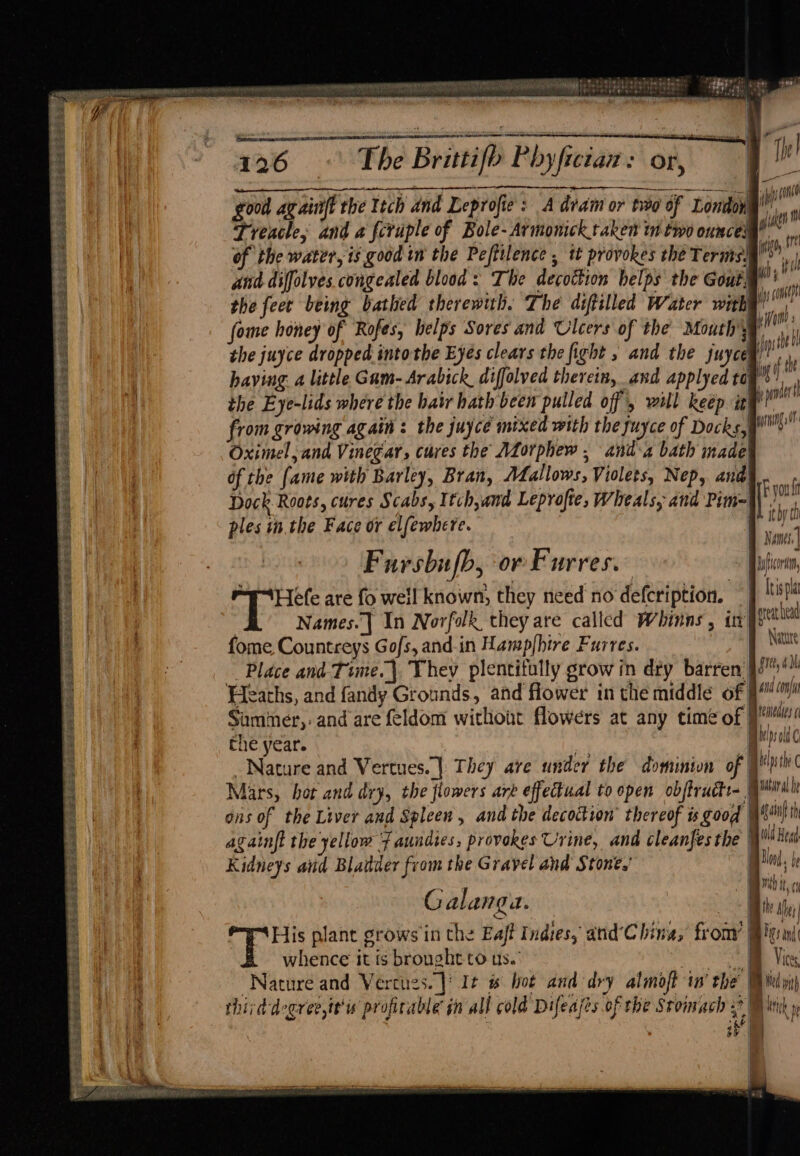 126 The Brittiſh Phyſician: or,
good againſt the Itch and Leproſie: A dram or two of London
Treacle, and a ſcruple of Bole-Armonick taken in two ounces
of the water, is good in the Peſtilence, it provokes the Terms,
and diſſolves congealed blood: The decoction helps the Gout,
the feet being bathed therewith. The diſtilled Water with
ſome honey of Roſes, helps Sores and Ulcers of the Mouth;
the juyce dropped into the Eyes clears the ſight, and the juyce
having a little Gum-Arabick diſſolved therein, and applyed to
the Eye-lids where the hair hath been pulled off, will keep it
from growing again: the juyce mixed with the juyce of Docks,
Oximel, and Vinegar, cures the Morphew, and a bath made
of the ſame with Barley, Bran, Mallows, Violets, Nep, and
Dock Roots, cures Scabs, Itch, and Leproſie, Wheals, and Pim-
ples in the Face or elſewhere.
Furſbuſh, or Furres.
THeſe are ſo well known, they need no deſcription.
Names.] In Norfolk they are called Whinns, in
ſome Countreys Goſs, and in Hampſhire Furres.
Place and Time.] They plentifully grow in dry barren
Heaths, and ſandy Grounds, and flower in the middle of
Summer, and are ſeldom without flowers at any time of
the year.
Nature and Vertues.] They are under the dominion of
Mars, hot and dry, the flowers are effectual to open obſtructi-
ons of the Liver and Spleen, and the decoction thereof is good
againſt the yellow Jaundies, provokes Urine, and cleanſes the
Kidneys and Bladder from the Gravel and Stone.
Galanga.
THis plant grows in the Eaſt Indies, and China, from
whence it is brought to us.
Nature and Vertues.] It is hot and dry almoſt in the
third degree, it is profitable in all cold Diſeaſes of the Stomach: